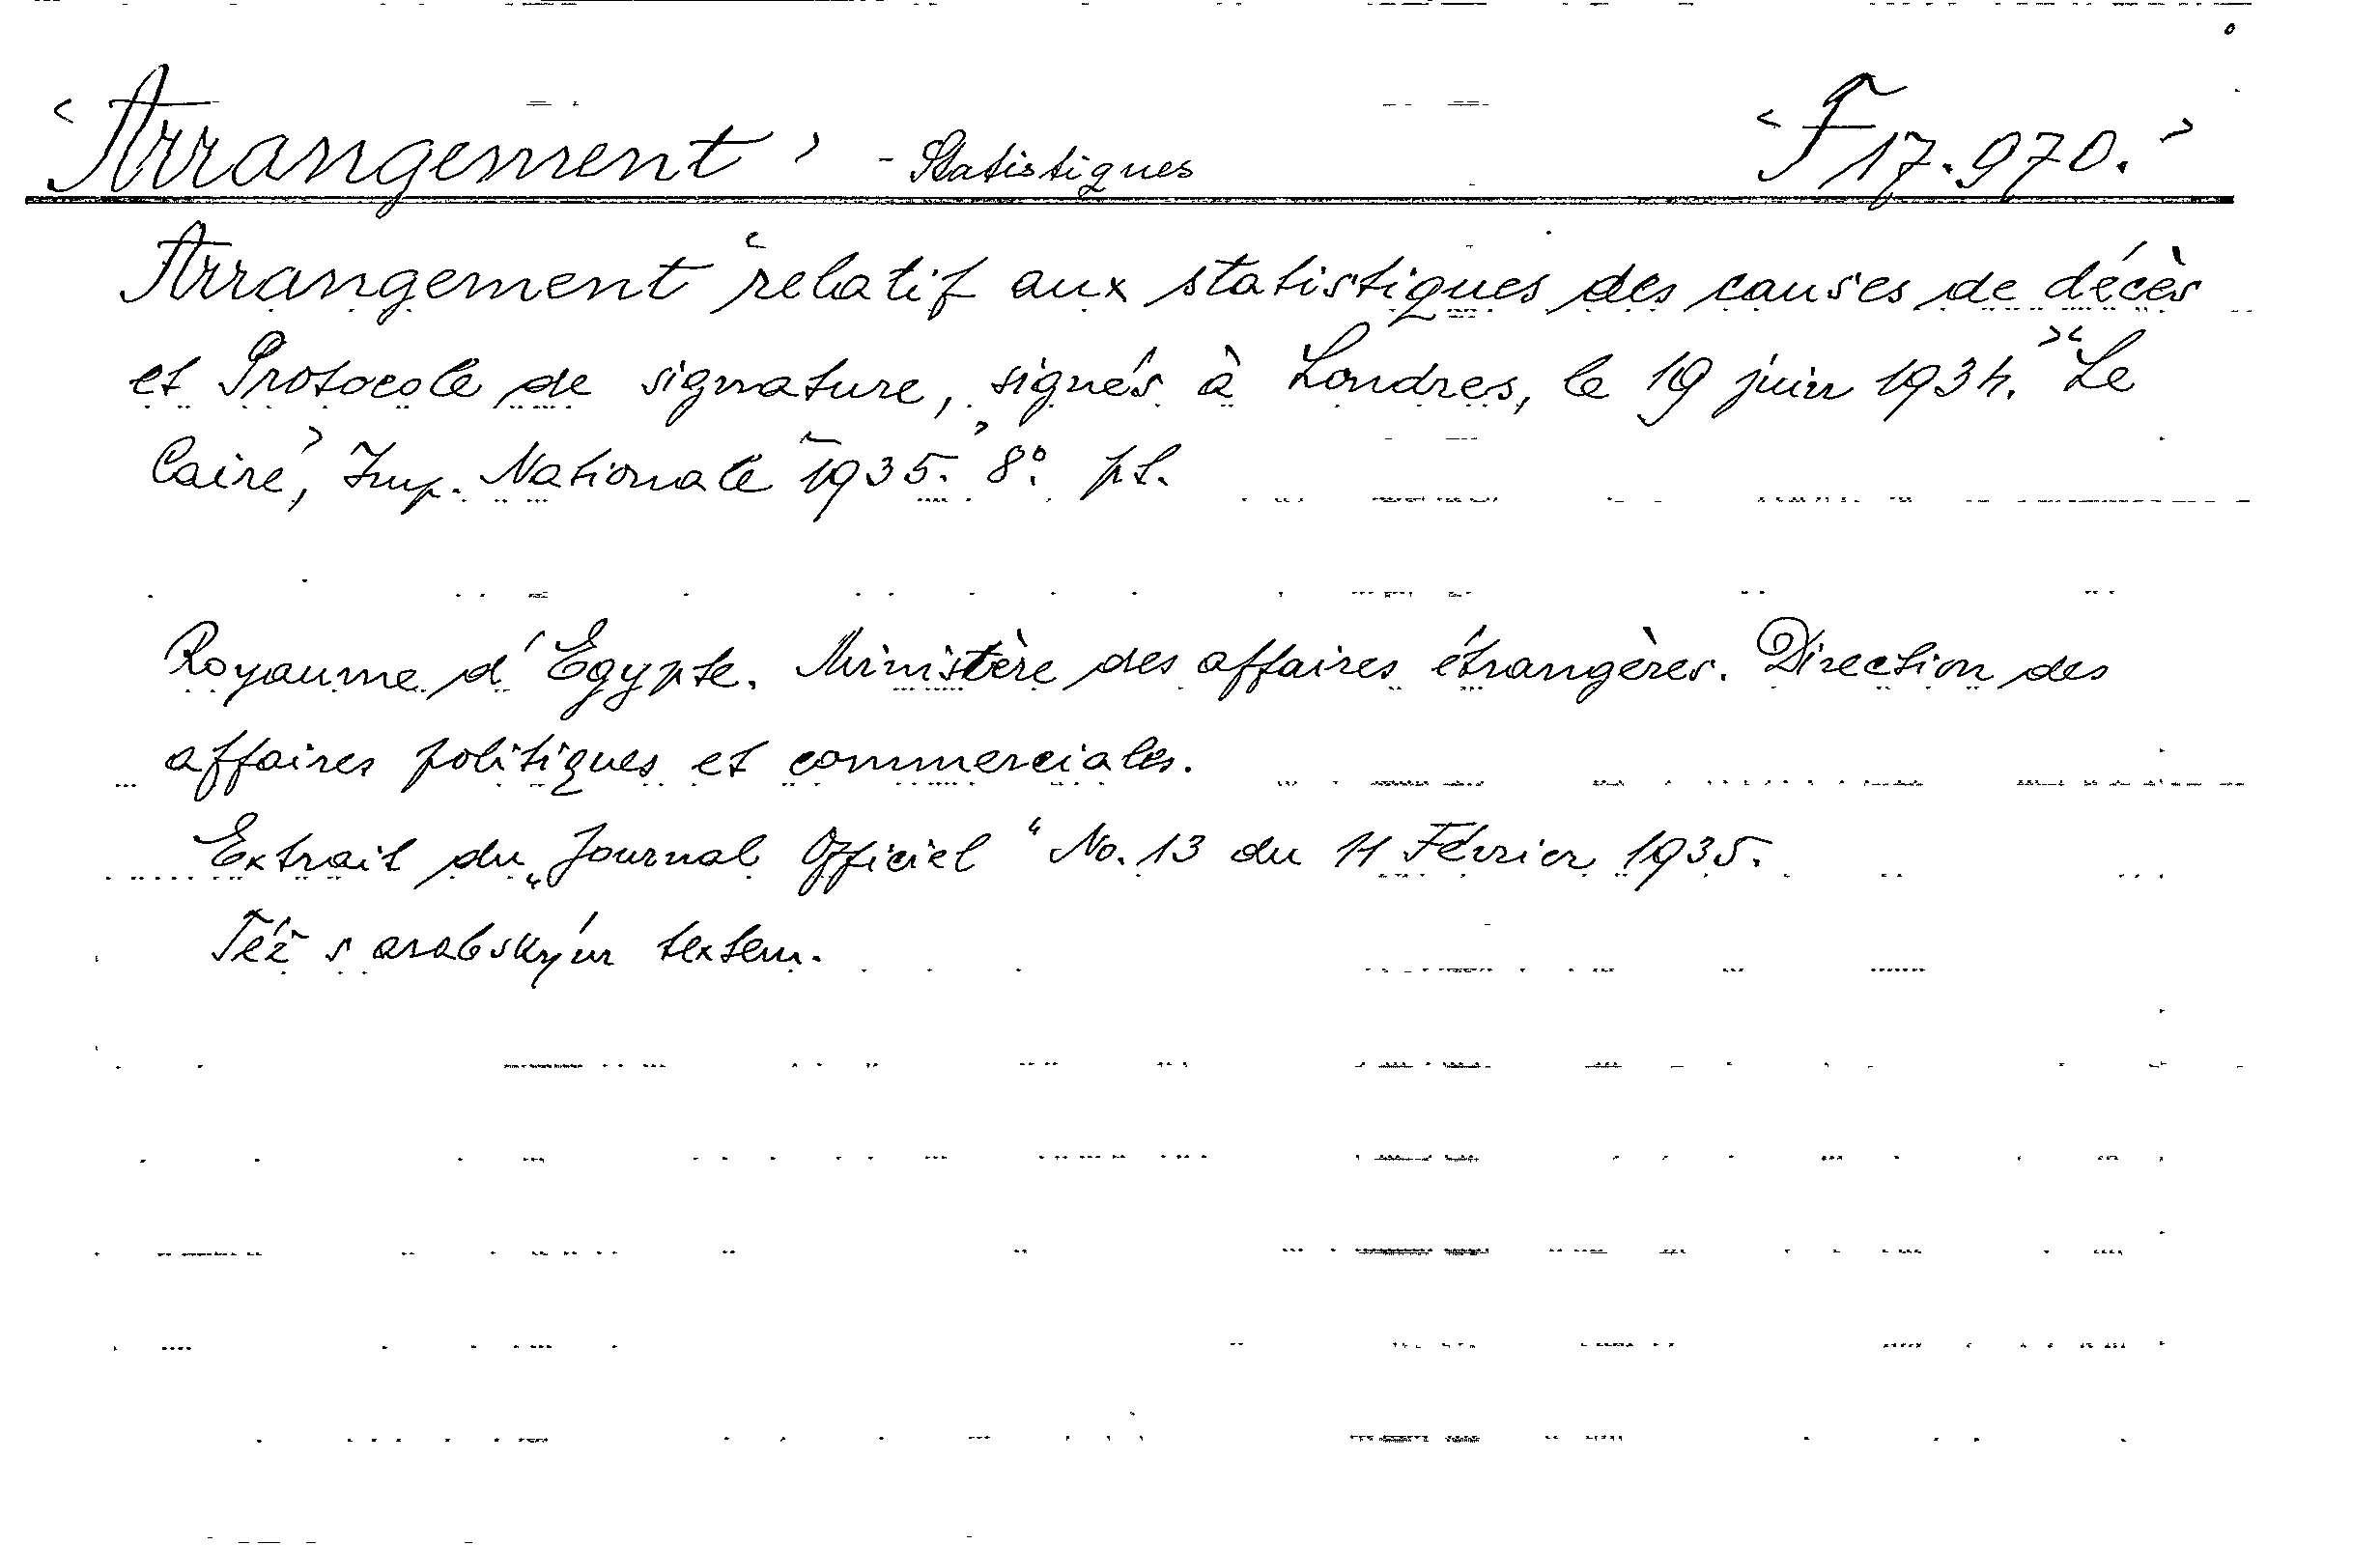 ‹Arrangement› - Statistiques ‹F 17.970.›
Arrangement ‹relatif aux statistiques des causes de décès
et Protocole de signature, signés à Londres, le 19 juin 1934.› ‹Le
Caire›, Imp. Nationale ‹1935.› 8°. pt.
Royaume d'Égypte. Ministère des affaires étrangères. Direction des
affaires politiques et commerciales.
Extrait du „Journal Officiel“ No. 13 du 11 Février 1935.
Též s arabským textem.